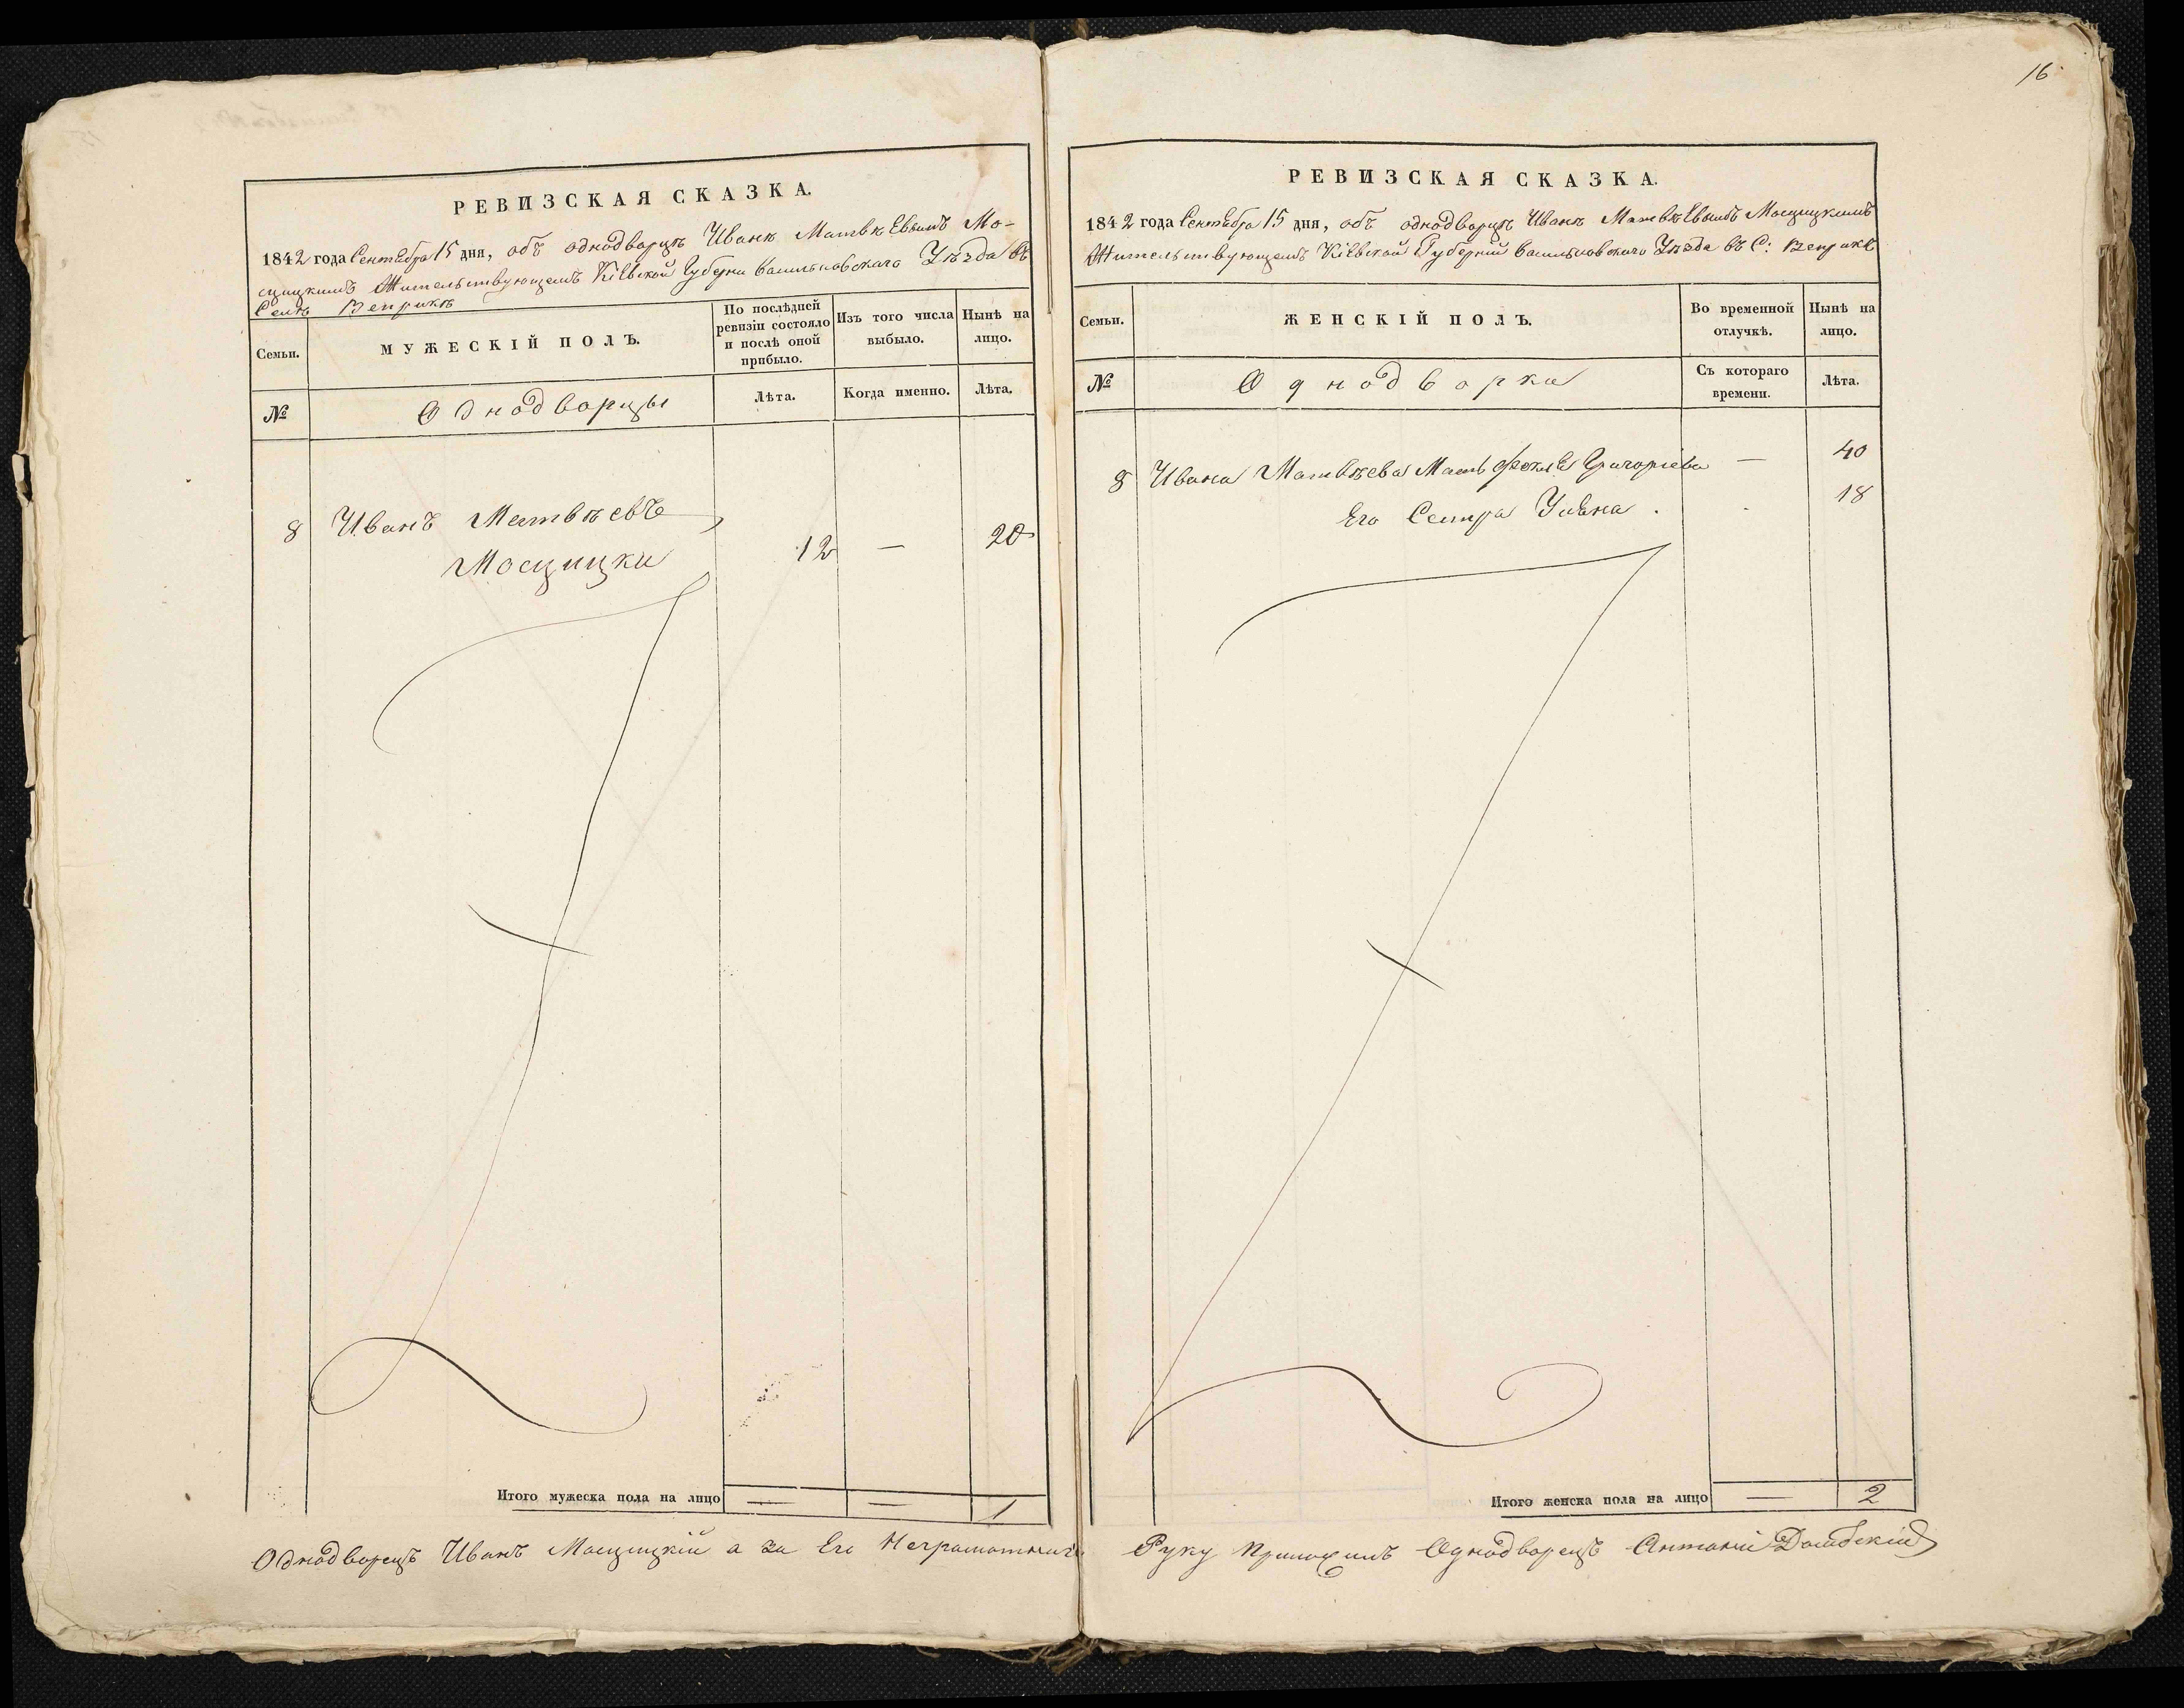 РЕВИЗСКАЯ СКАЗКА.
1842 года Сентебра 15 дня, объ однодворцѣ Иванѣ Матвѣевымъ Мо-
щицкимъ Жительствующемъ Кіевской Губерни Васильковскаго Уѣзда въ
Селѣ Веприкѣ
Семьи.
МУЖЕСКІЙ ПОЛЪ.
По послѣдней ревизіи состояло и послѣ оной прибыло.
Изъ того числа выбыло.
Нынѣ на лицо.
№
Однодворцы
Лѣта.
Когда именно.
Лѣта.
8 Иванъ Матвѣевъ
Мощицки 12 — 20
Итого мужеска пола на лицо — — 1
Однодворецъ Иванъ Мощицкій а за Его Неграмотнаго
16
РЕВИЗСКАЯ СКАЗКА.
1842 года Сентебра 15 дня, объ однодворцѣ Иванѣ Матвѣевымъ Мощицкимъ
Жительствующемъ Кіевской Губерній Васильковскаго Уѣзда въ С: Веприкѣ
Семьи.
ЖЕНСКІЙ ПОЛЪ.
Во временной отлучкѣ.
Нынѣ на лицо.
№
Однодворки
Съ котораго времени.
Лѣта.
8 Ивана Матвѣева Мать Фекле Григоріева — 40
Его Сестра 18
Итого женска пола на лицо — 2
Руку Приложилъ Однодворецъ Антоній Домбскій